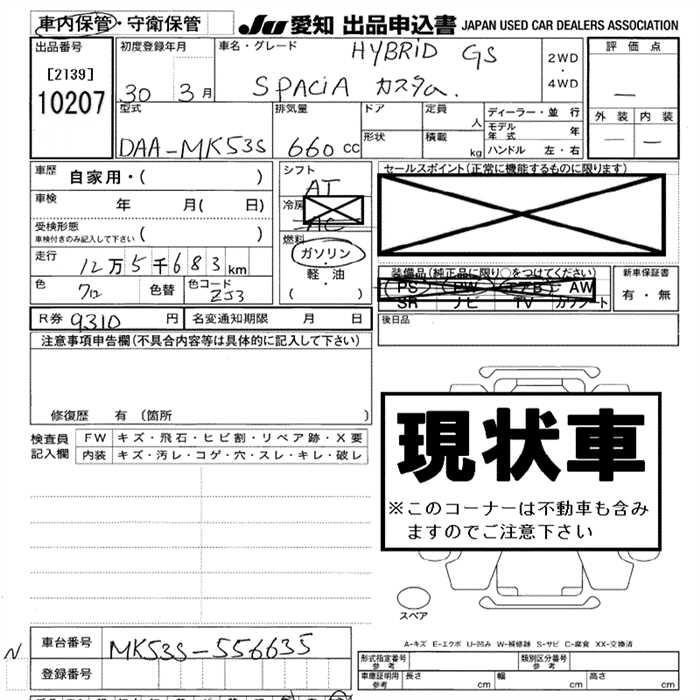 車内保管・守衛保管
JU 愛知 出品申込書 JAPAN USED CAR DEALERS ASSOCIATION
出品番号
[2139]
10207
初度登録年月
30 3月
車名・グレード
HYBRID GS
SPACIA カスタム
2WD
・
4WD
評価点
—
外装 内装
— —
型式
DAA-MK53S
排気量
660 cc
ドア
形状
定員
人
積載
kg
ディーラー・並行
モデル年式 年
ハンドル 左・右
車歴 自家用・( )
車検 年 月( 日)
受検形態
車検付きのみ記入して下さい ( )
走行 12万5千683km
色 色替 色コード ZJ3
シフト
AT
冷房
AC
燃料
ガソリン
・
軽油
( )
セールスポイント(正常に機能するものに限ります)
装備品(純正品に限り○をつけてください)
PS PW エアB AW
SR ナビ TV カワシート
新車保証書
有・無
R券 9310 円 名変通知期限 月 日
後日品
注意事項申告欄(不具合内容等は具体的に記入して下さい)
修復歴 有(箇所 )
検査員
記入欄
FW キズ・飛石・ヒビ割・リペア跡・X要
内装 キズ・汚レ・コゲ・穴・スレ・キレ・破レ
現状車
※このコーナーは不動車も含み
ますのでご注意下さい
スペア
A-キズ E-エクボ U-凹み W-補修跡 S-サビ C-腐食 XX-交換済
N
車台番号 MK53S-556635
登録番号
形式指定番号
参考
類別区分番号
参考
車庫証明用
参考
長さ cm 幅 cm 高さ cm